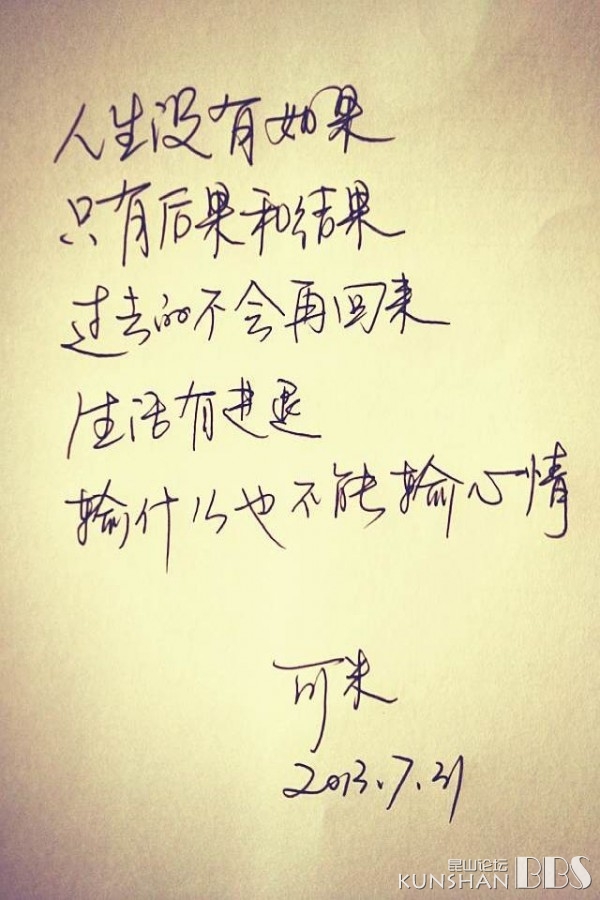 人生没有如果
只有后果和结果
过去的不会再回来
生活有进退
输什么也不能输心情
可米
2013.7.31
昆山论坛
KUNSHAN BBS